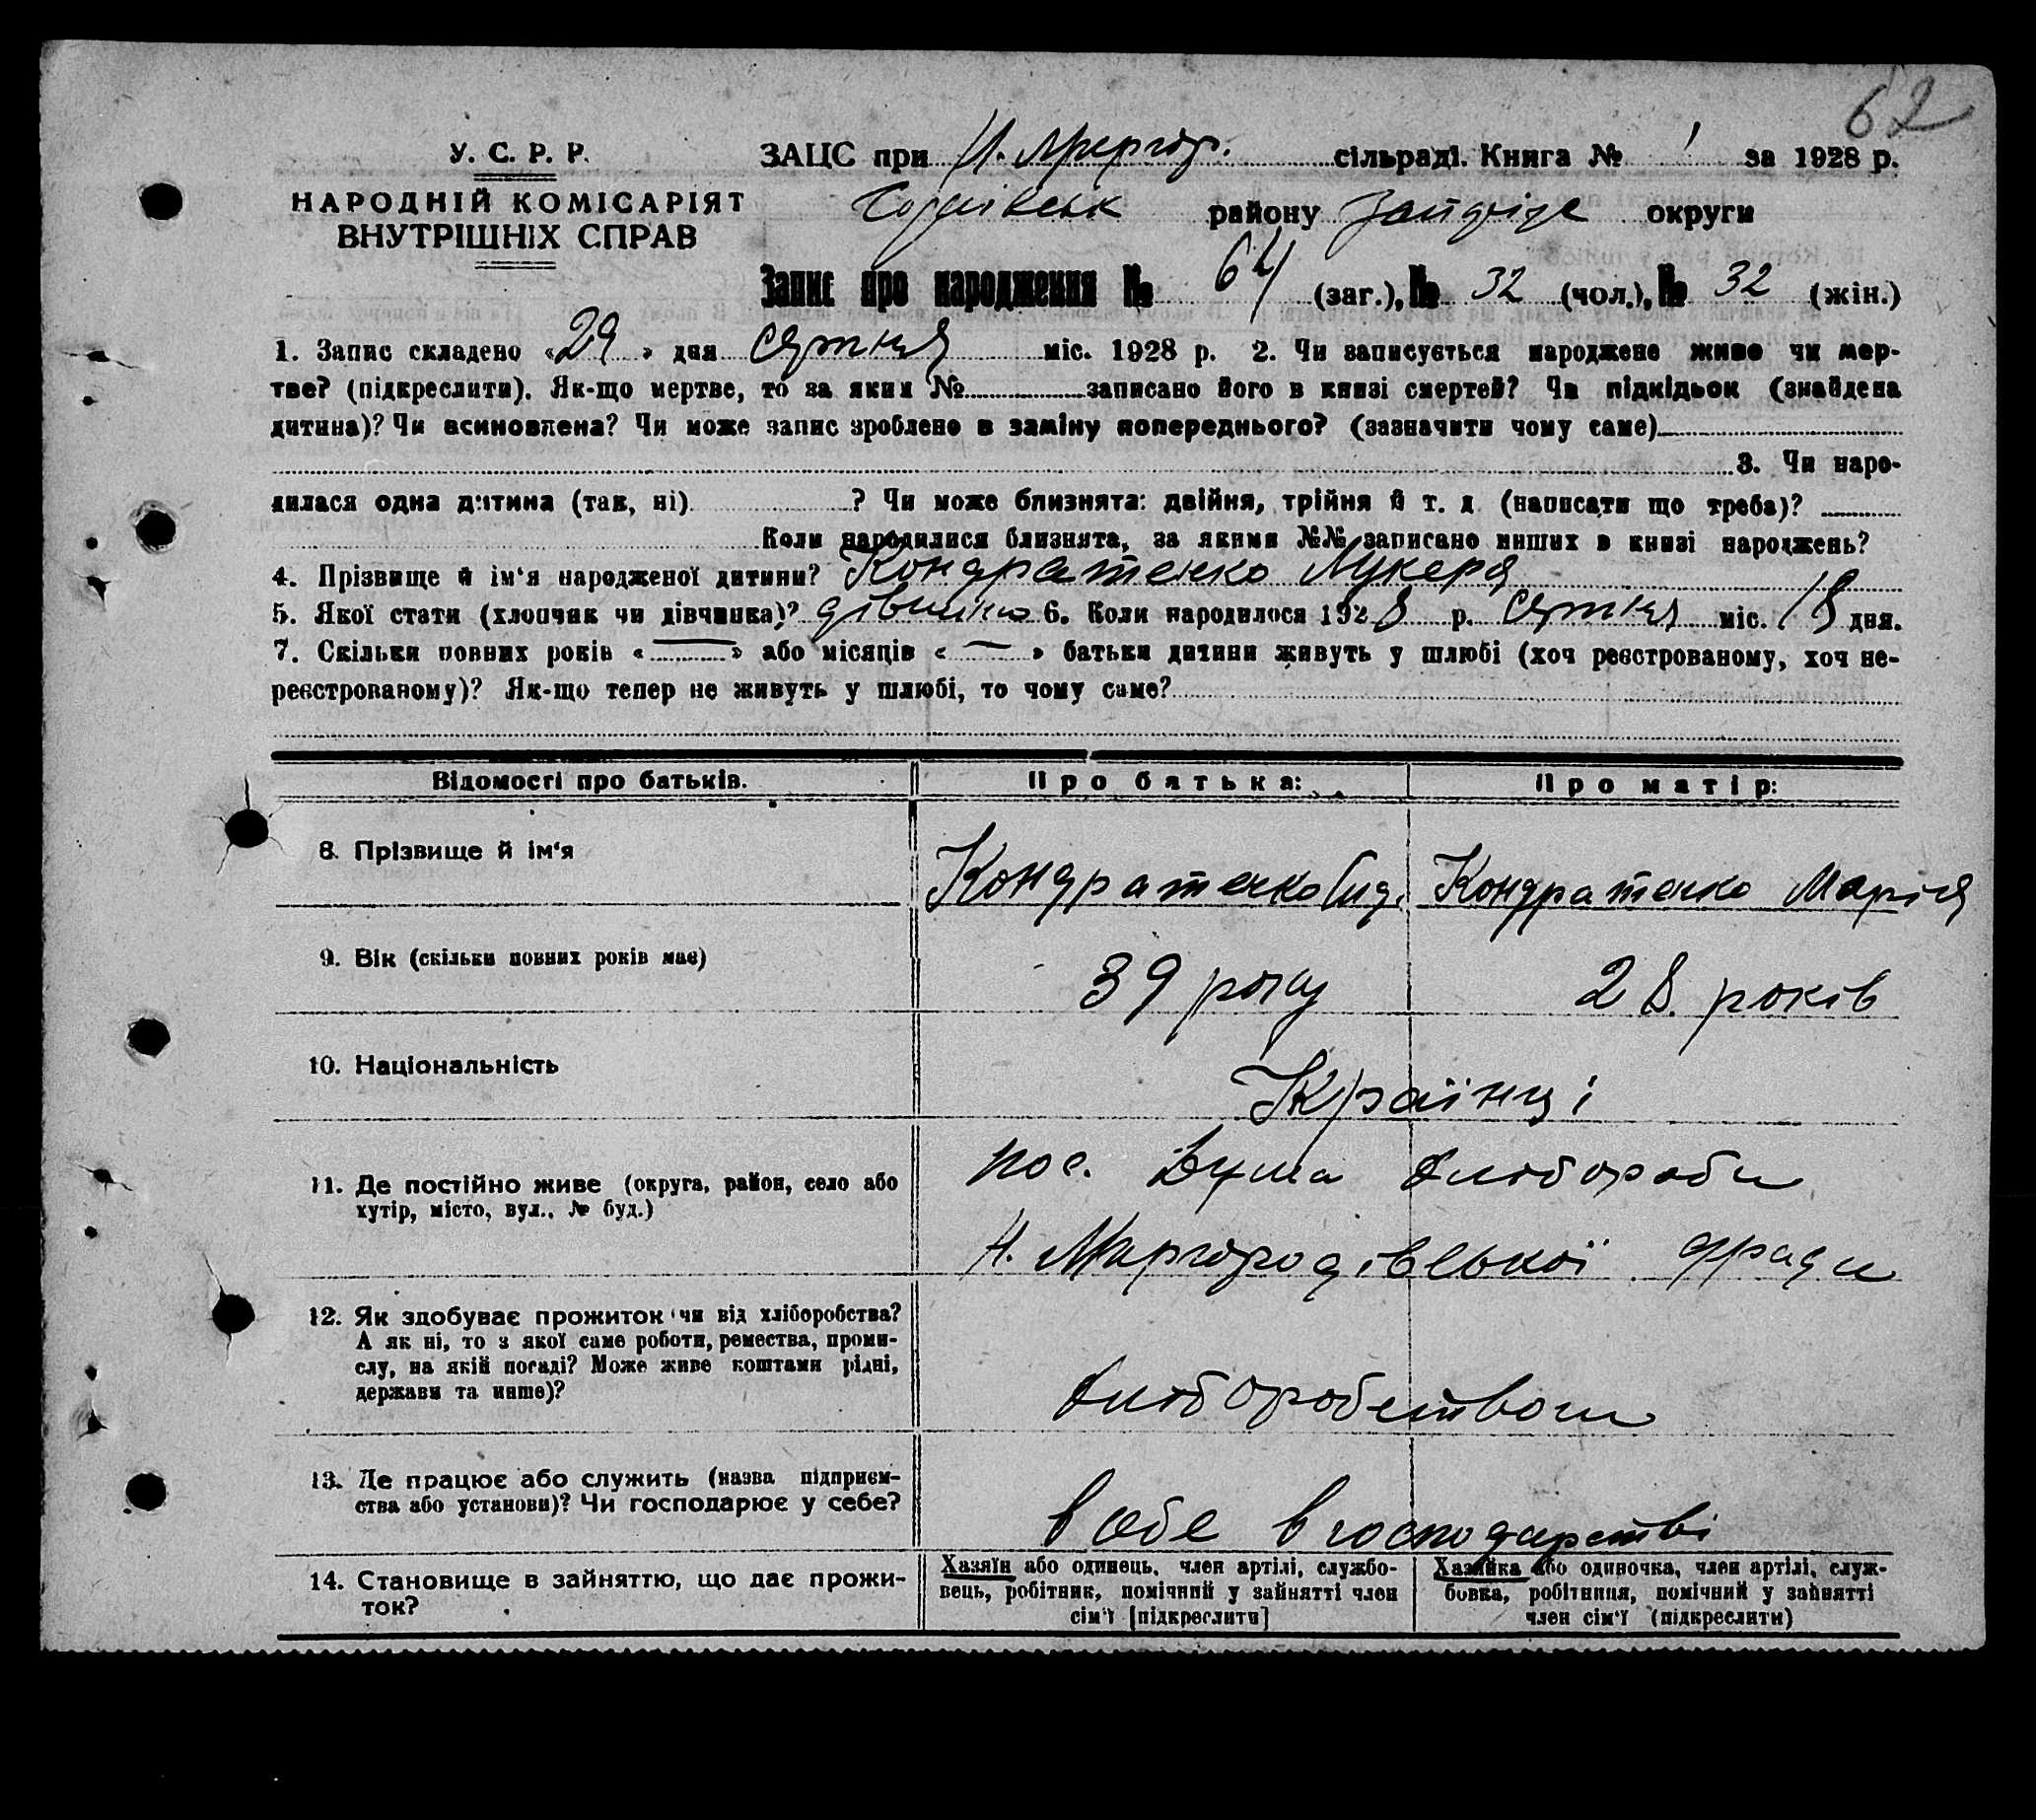 62
У. С. Р. Р.
НАРОДНІЙ КОМІСАРІЯТ
ВНУТРІШНІХ СПРАВ
ЗАЦС при Н. Миргор. сільраді. Книга № 1 за 1928 р.
району округи
Запис про народження № 64 (заг.), № 32 (чол.), № 32 (жін.)
1. Запис складено «29» дня серпня міс. 1928 р. 2. Чи записується народжене живе чи мер-
тве? (підкреслити). Як-що мертве, то за яким № записано його в книзі смертей? Чи підкідьок (знайдена
дитина)? Чи всиновлена? Чи може запис зроблено в заміну попереднього? (зазначити чому саме)
3. Чи наро-
дилася одна дитина (так, ні) ? Чи може близнята: двійня, трійня й т. д. (написати що треба)?
Коли народилися близнята, за якими №№ записано инших в книзі народжень?
4. Прізвище й ім'я народженої дитини? Кондратенко Лукеря
5. Якої стати (хлопчик чи дівчинка)? дівчина 6. Коли народилося 1928 р. серпня міс. 18 дня.
7. Скільки повних років «—» або місяців «—» батьки дитини живуть у шлюбі (хоч реєстрованому, хоч не-
реєстрованому)? Як-що тепер не живуть у шлюбі, то чому саме?
Відомості про батьків. Про батька: Про матір:
8. Прізвище й ім'я Кондратенко Сид. Кондратенко Марія
9. Вік (скільки повних років має) 39 року 28 років
10. Національність Українці
11. Де постійно живе (округа, район, село або
хутір, місто, вул., № буд.)
пос. Дума Хлібороби
Н. Миргородівської с/ради
12. Як здобуває прожиток чи від хліборобства?
А як ні, то з якої саме роботи, ремества, проми-
слу, на якій посаді? Може живе коштами рідні,
держави та инше)?
Хліборобством
13. Де працює або служить (назва підприєм-
ства або установи)? Чи господарює у себе?
в себе в господарстві
14. Становище в зайняттю, що дає прожи-
ток?
Хазяїн або одинець, член артілі, службо-
вець, робітник, помічний у зайнятті член
сім'ї [підкреслити]
Хазяйка або одиночка, член артілі, служ-
бовка, робітниця, помічний у зайнятті
член сім'ї (підкреслити)